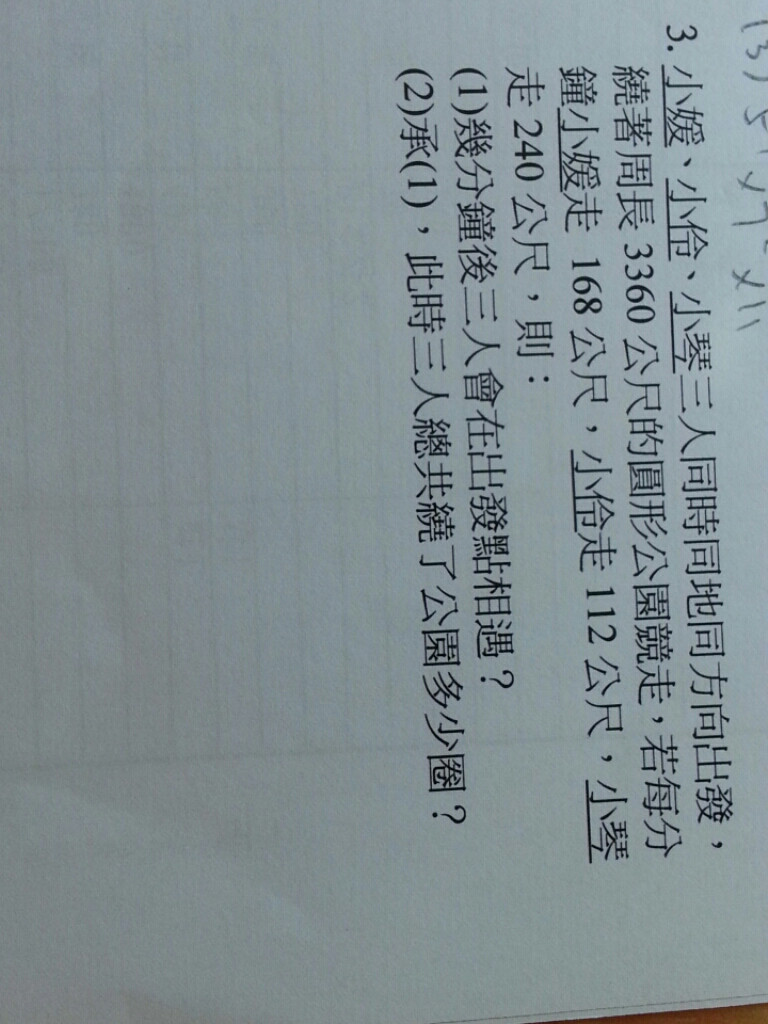 3. 小媛、小伶、小琴三人同時同地同方向出發，
繞著周長 3360 公尺的圓形公園競走，若每分
鐘小媛走 168 公尺，小伶走 112 公尺，小琴
走 240 公尺，則：
(1)幾分鐘後三人會在出發點相遇？
(2)承(1)，此時三人總共繞了公園多少圈？